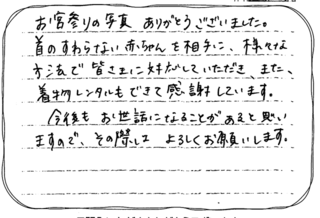 お宮参りの写真 ありがとうございました。
首のすわらない赤ちゃんを相手に、様々な
方法で皆さまに対応していただき、また、
着物レンタルもできて感謝しています。
今後も お世話になることがあると思い
ますので、その際して よろしくお願いします。